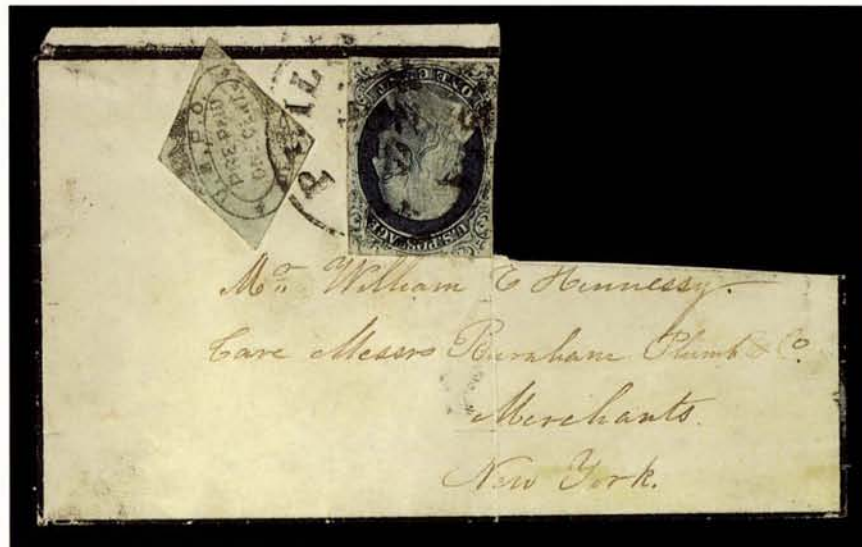 U.S.P.O.
PRE-PAID
ONE CENT
PHIL
ONE CENT
U.S. POSTAGE
Mr. William C Hennessy.
Care Messrs Burnham Plumb & Co.
Merchants.
New York.